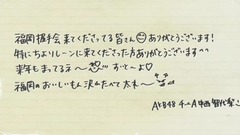 福岡握手会来てくださってる皆さん ありがとうございます!
特にちよりレーンに来てくださった方ありがとうございます^^
来年もまってるネ〜 すて〜よ♡
福岡のおいしいもん沢山たべて大木〜
AKB48 チームA 中西智代梨